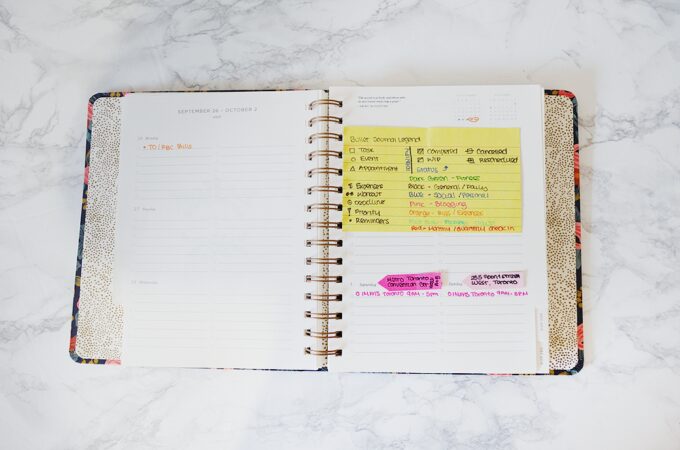 SEPTEMBER 26 - OCTOBER 2
26 Monday
• TD / RBC Bills
27 Tuesday
28 Wednesday
Bullet Journal Legend
□ Task
○ Event
△ Appointment
Completed
WIP
Cancelled
Rescheduled
STATUS
$ Expenses
Workout
Deadline
! Priority
• Reminders
Dark Green - Fitness
Black - General / Daily
Blue - Social / Personal
Pink - Blogging
Orange - Bills / Expenses
Red - Monthly / Quarterly check in
1 Saturday
Metro Toronto
Convention Centre
Toronto 9AM - 5PM
Sunday
255 Front Street
West, Toronto
Toronto 9AM - 5PM